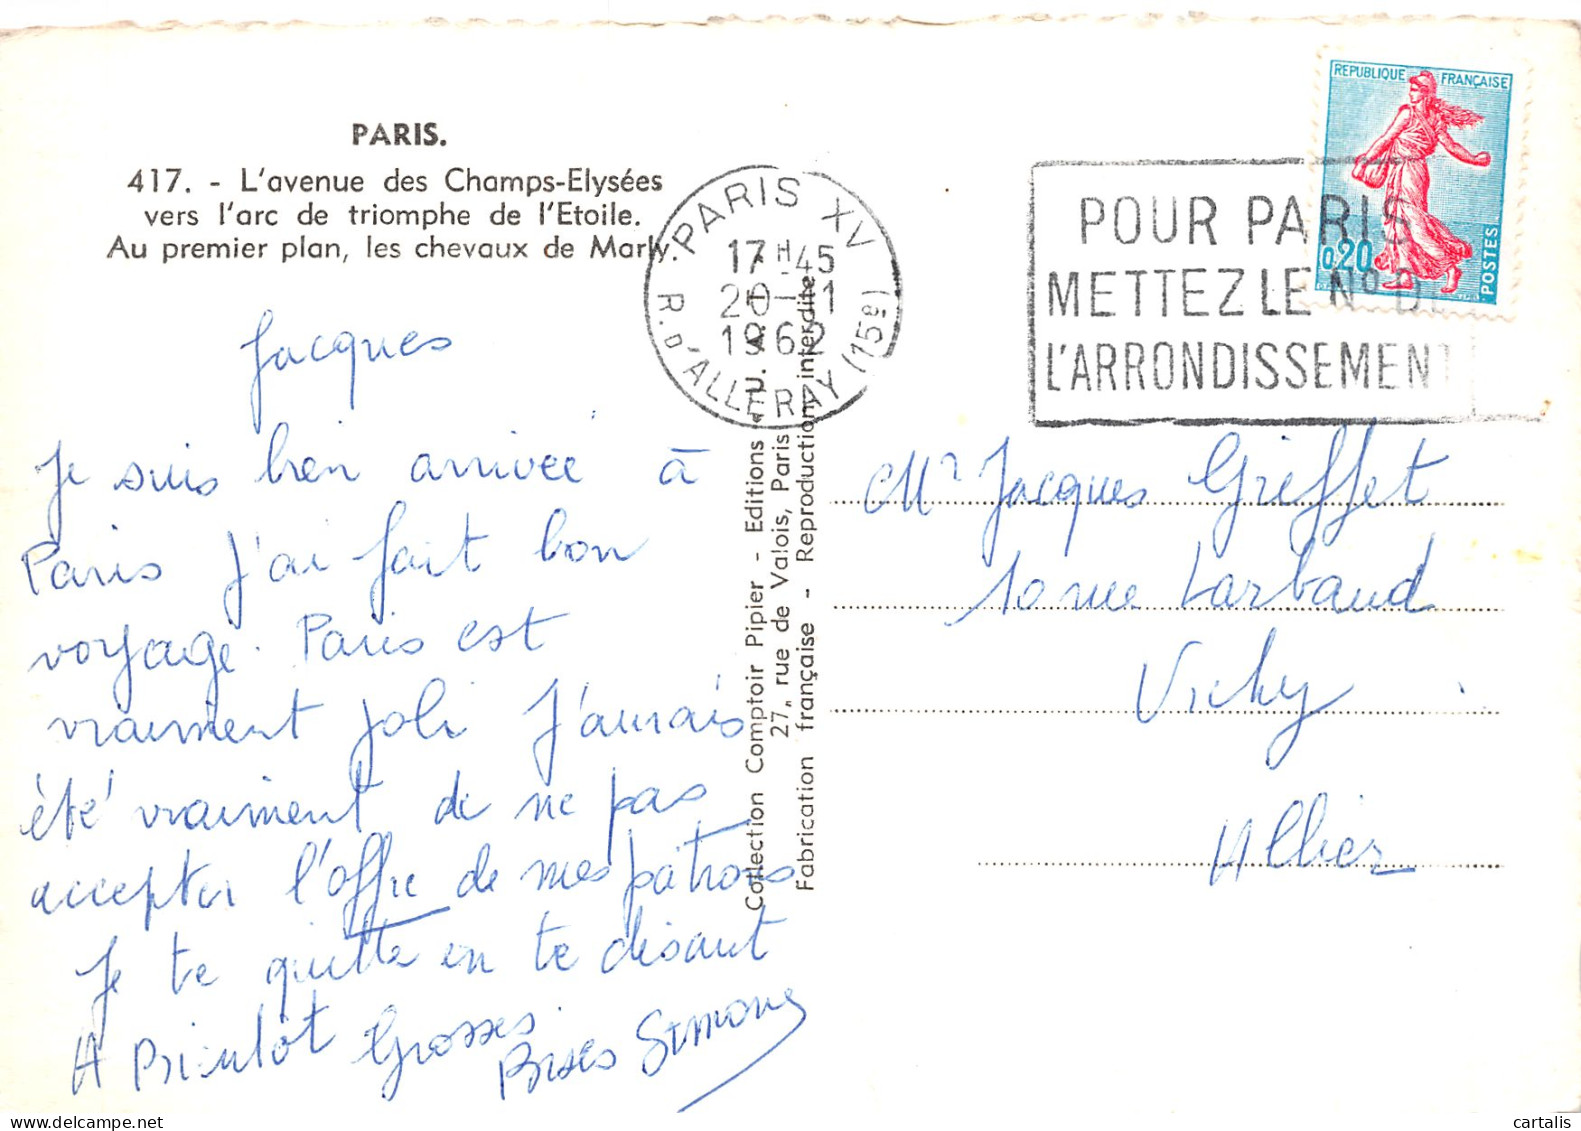 PARIS.
417. - L'avenue des Champs-Elysées
vers l'arc de triomphe de l'Etoile.
Au premier plan, les chevaux de Marly.
PARIS XV
17H45
20-1
1962
R. D'ALLERAY (15e)
POUR PARIS
METTEZ LE No D
L'ARRONDISSEMENT
REPUBLIQUE FRANÇAISE
0,20
POSTES
Jacques
Je suis bien arrivée à
Paris J'ai fait bon
voyage. Paris est
vraiment joli J'aurais
été vraiment de ne pas
accepter l'offre de mes patrons
Je te quitte en te disant
A Bientôt Grosses
Bises Simone
Collection Comptoir Pipier - Editions
27, rue de Valois, Paris
Fabrication française - Reproduction interdite
Mr Jacques Griffet
10 rue Larbaud
Vichy
Allier
cartalis